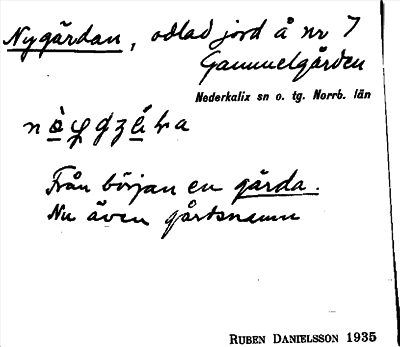 Nygärdan, odlad jord å nr 7
Gammelgården
Nederkalix sn o. tg. Norrb. län
Från början en gärda.
Nu även gårdsnamn
RUBEN DANIELSSON 1935